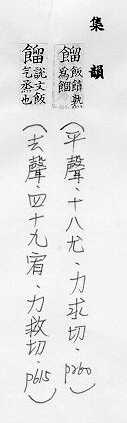 集韻
餾飯餴熟爲餾
(平聲.十八尤.力求切.p260)
餾說文飯气蒸也
(去聲.四十九宥.力救切.p615)